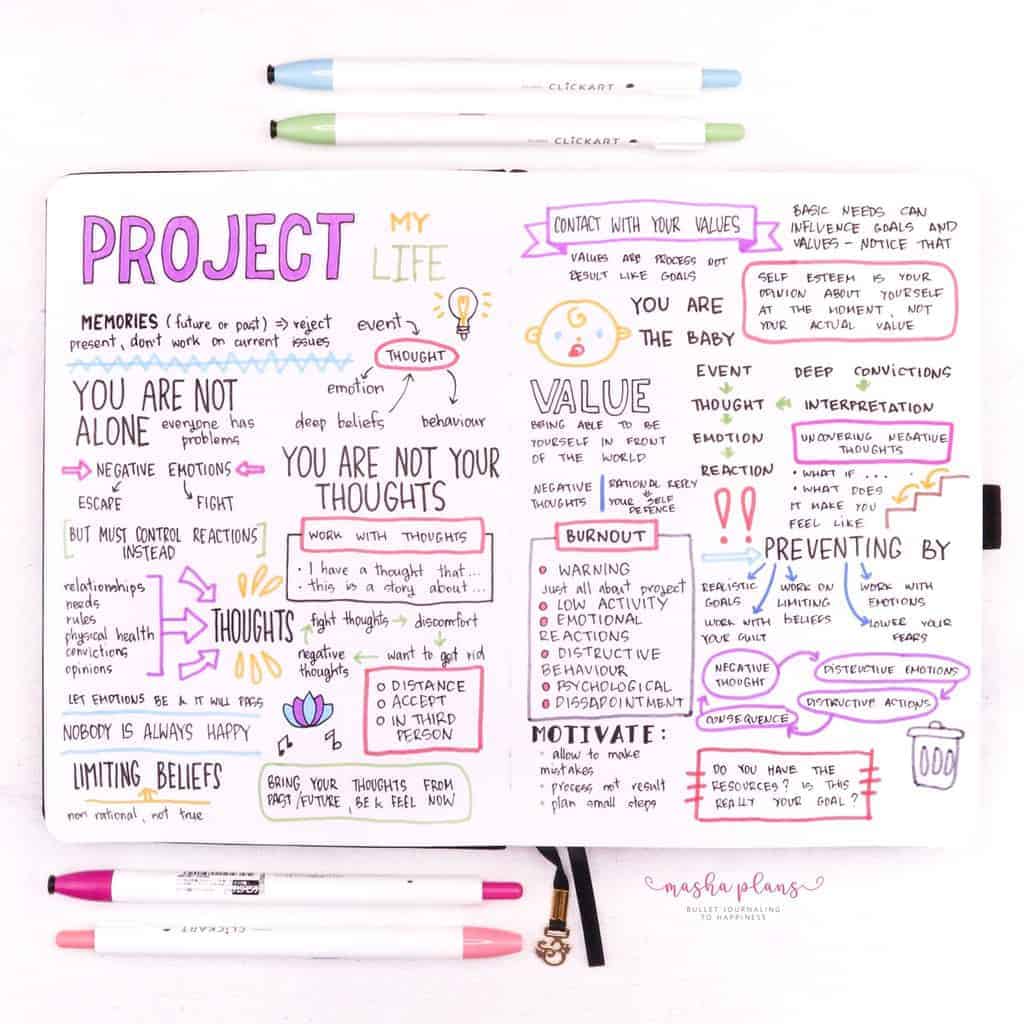 CLiCKART
CLiCKART
PROJECT MY
LIFE
MEMORIES (future or past) ⇒ reject
present, don't work on current issues
event
THOUGHT
emotion
deep beliefs
behaviour
YOU ARE NOT
ALONE everyone has
problems
NEGATIVE EMOTIONS
ESCAPE
FIGHT
[BUT MUST CONTROL REACTIONS
INSTEAD]
YOU ARE NOT YOUR
THOUGHTS
WORK WITH THOUGHTS
• I have a thought that...
• this is a story about...
relationships
needs
rules
physical health
convictions
opinions
THOUGHTS
fight thoughts → discomfort
negative
thoughts
← want to got rid
○ DISTANCE
○ ACCEPT
○ IN THIRD
PERSON
LET EMOTIONS BE & IT WILL PASS
NOBODY IS ALWAYS HAPPY
LIMITING BELIEFS
non rational, not true
BRING YOUR THOUGHTS FROM
PAST/FUTURE, BE & FEEL NOW
CONTACT WITH YOUR VALUES
VALUES ARE PROCESS NOT
RESULT LIKE GOALS
BASIC NEEDS CAN
INFLUENCE GOALS AND
VALUES - NOTICE THAT
SELF ESTEEM IS YOUR
OPINION ABOUT YOURSELF
AT THE MOMENT, NOT
YOUR ACTUAL VALUE
YOU ARE
THE BABY
VALUE
BEING ABLE TO BE
YOURSELF IN FRONT
OF THE WORLD
NEGATIVE
THOUGHTS
RATIONAL REPLY
YOUR SELF
DEFENCE
EVENT
THOUGHT
EMOTION
REACTION
DEEP CONVICTIONS
INTERPRETATION
UNCOVERING NEGATIVE
THOUGHTS
• WHAT IF ...
• WHAT DOES
IT MAKE YOU
FEEL LIKE
!!
BURNOUT
WARNING
just all about project
LOW ACTIVITY
EMOTIONAL
REACTIONS
DISTRUCTIVE
BEHAVIOUR
PSYCHOLOGICAL
DISSAPOINTMENT
PREVENTING BY
REALISTIC
GOALS
WORK WITH
YOUR GUILT
WORK ON
LIMITING
BELIEFS
WORK WITH
EMOTIONS
LOWER YOUR
FEARS
NEGATIVE
THOUGHT
DISTRUCTIVE EMOTIONS
DISTRUCTIVE ACTIONS
CONSEQUENCE
MOTIVATE:
• allow to make
mistakes
• process not result
• plan small steps
DO YOU HAVE THE
RESOURCES? IS THIS
REALLY YOUR GOAL?
masha plans
BULLET JOURNALING
TO HAPPINESS
CLiCKART